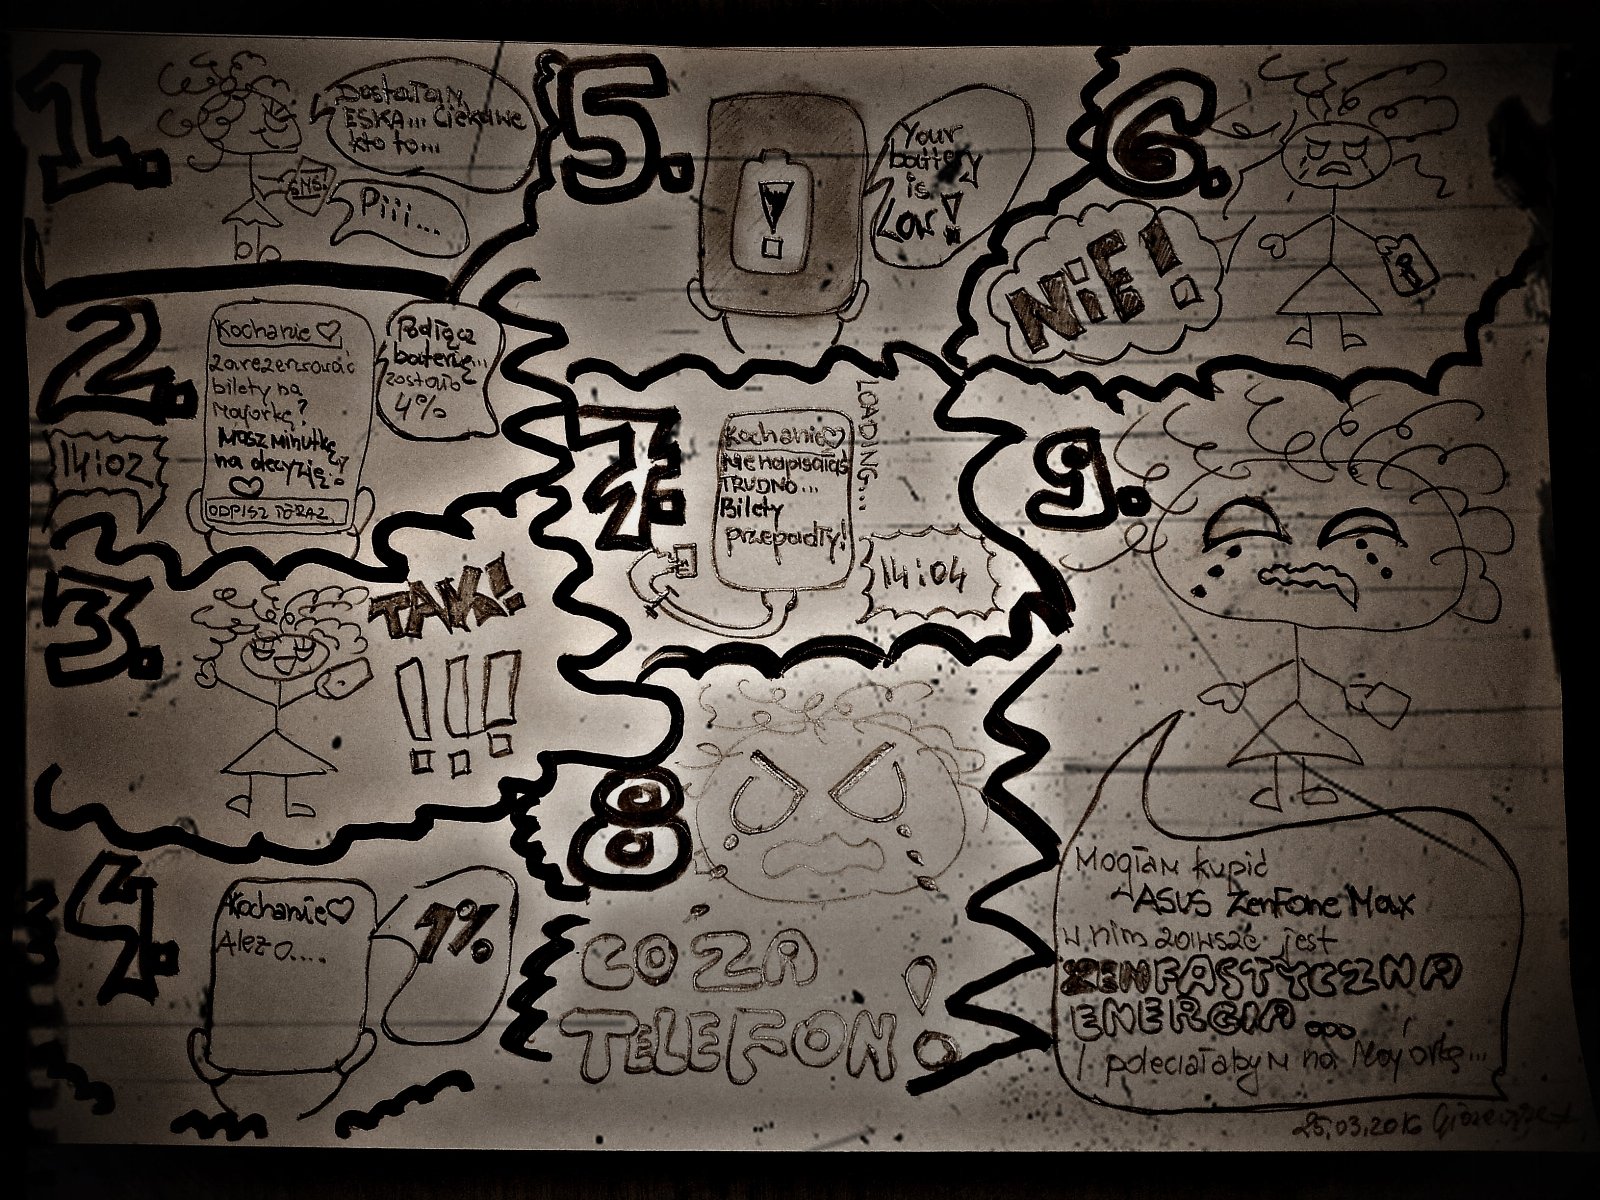 1.
Dostałam
ESKA... Ciekawe
kto to...
SMS!
Piii...
2.
14:02
Kochanie ♡
zarezerwować
bilety na
Majorkę?
Masz minutkę
na decyzję?
♡
ODPISZ TERAZ
Podłącz
baterię...
zostało
4%
3.
TAK!
!!!
4.
Kochanie ♡
Ależ o....
1%
5.
!
Your
battery
is
Low!
6.
NIE!
7.
Kochanie ♡
Nie napisałaś
TRUDNO...
Bilety
przepadły!
LOADING...
14:04
8
CO ZA
TELEFON!
9.
Mogłam kupić
ASUS ZenFone Max
w nim zawsze jest
ZENFASTYCZNA
ENERGIA...
I poleciałabym na Majorkę...
25.03.2016